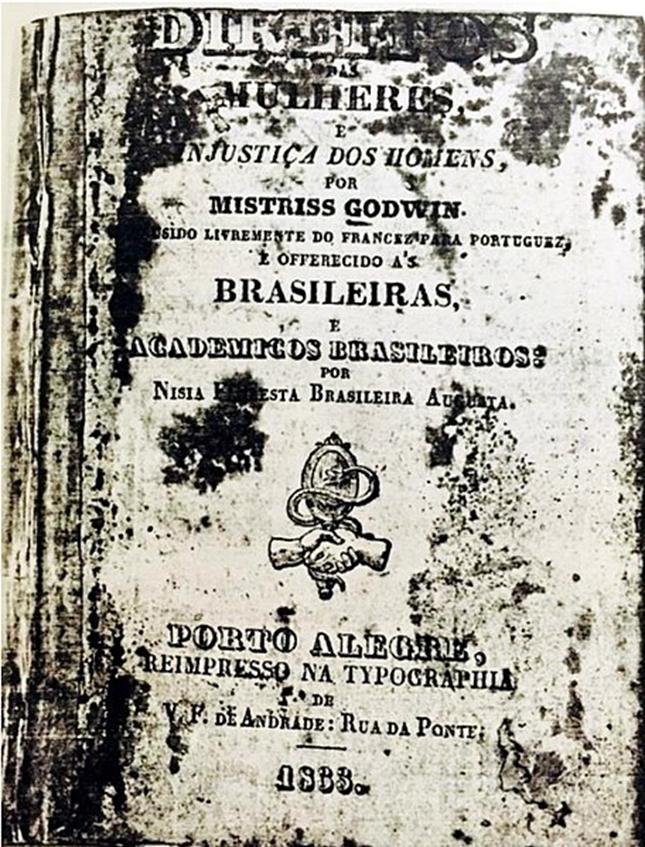 DIREITOS
DAS
MULHERES,
E
INJUSTIÇA DOS HOMENS,
POR
MISTRISS GODWIN.
LIVREMENTE DO FRANCEZ PARA PORTUGUEZ,
E OFFERECIDO A'S
BRASILEIRAS,
E
ACADEMICOS BRASILEIROS:
POR
NISIA FLORESTA BRASILEIRA AUGUSTA.
PORTO ALEGRE,
REIMPRESSO NA TYPOGRAPHIA
DE
V. F. DE ANDRADE: RUA DA PONTE.
1833.